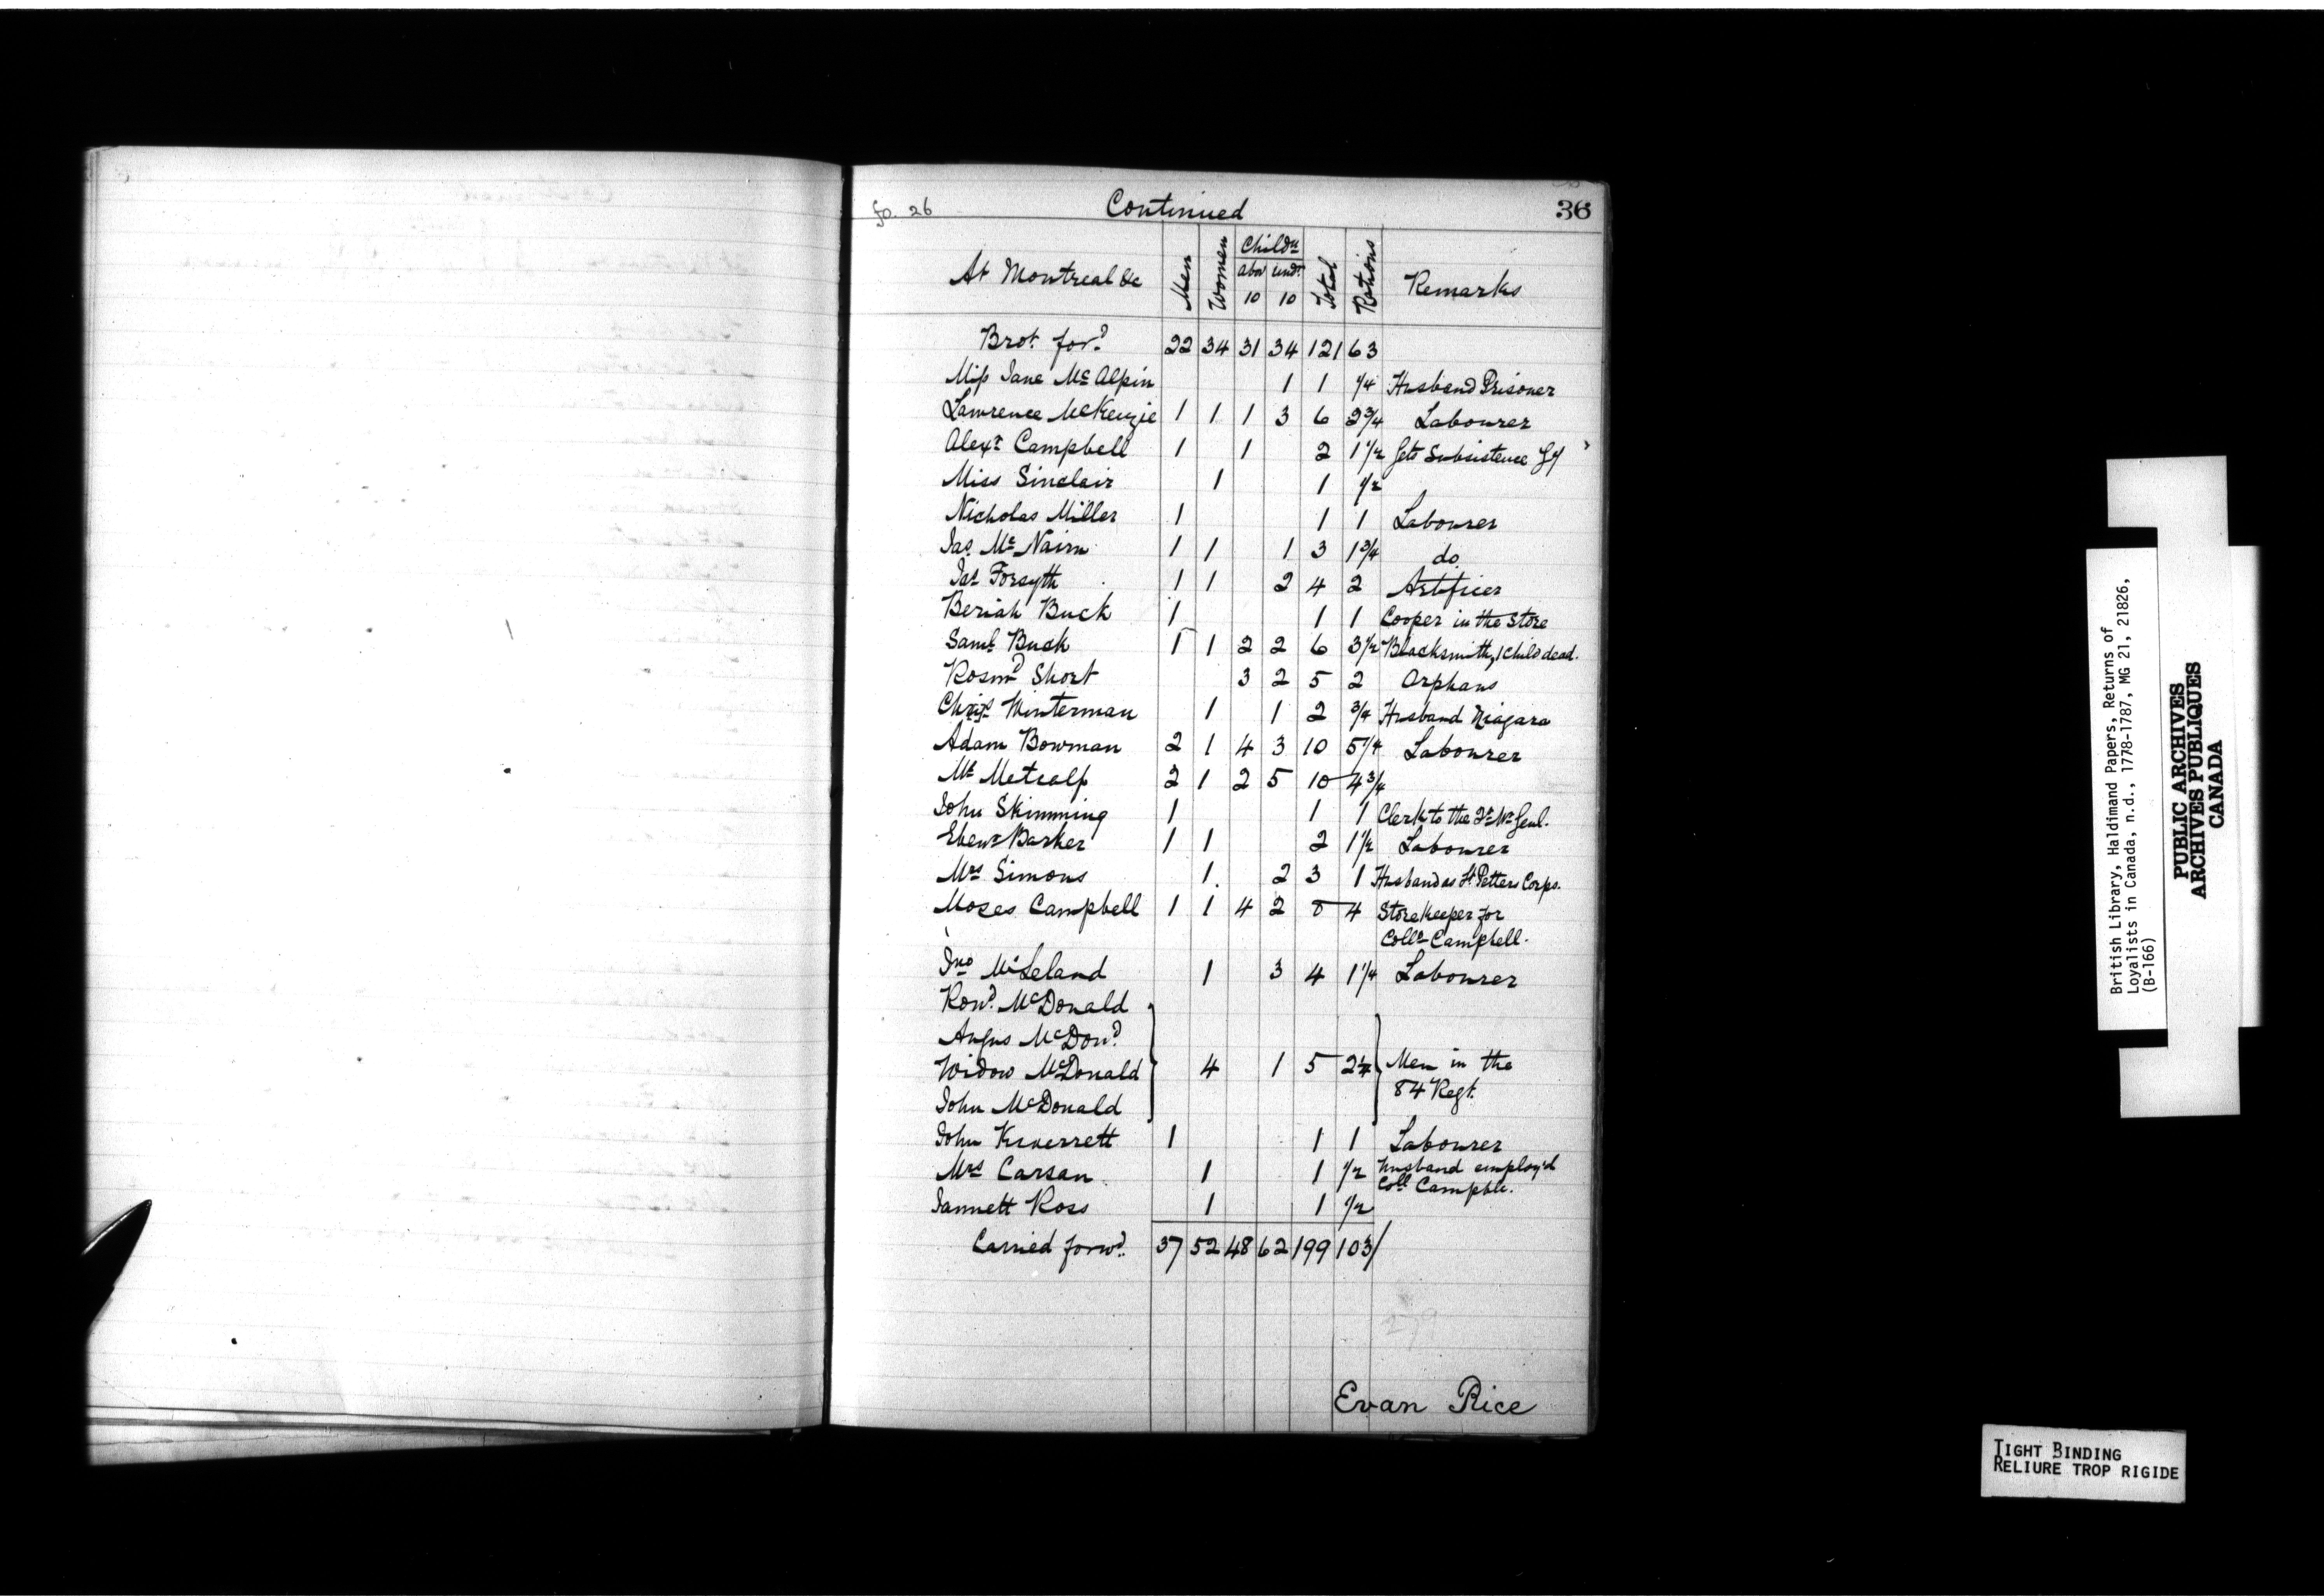 fo. 26 Continued 36
At Montreal &c Men Women Childn abov 10 undr 10 Total Rations Remarks
Brot. ford 22 34 31 34 121 63
Miss Jane Mc Alpin 1 1 1/4 Husband Prisoner
Lawrence McKenzie 1 1 1 3 6 2 3/4 Labourer
Alexr Campbell 1 1 2 1 1/2 Gets Subsistence
Miss Sinclair 1 1 1/2
Nicholas Miller 1 1 1 Labourer
Jas. Mc Nairn 1 1 1 3 1 3/4 do.
Jas Forsyth 1 1 2 4 2 Artificer
Beriah Buck 1 1 1 Cooper in the Store
Saml Buck 1 1 2 2 6 3 1/2 Blacksmith, 1 Child dead.
Rosmd Short 3 2 5 2 Orphans
Winterman 1 1 2 3/4 Husband Niagara
Adam Bowman 2 1 4 3 10 5 1/4 Labourer
Mr Metcalf 2 1 2 5 10 4 3/4
John Skimming 1 1 1 Clerk to the Qr Mr Genl.
Ebenr Barker 1 1 2 1 1/2 Labourer
Mrs Simons 1 2 3 1 Husband Corps.
Moses Campbell 1 1 4 2 8 4 Storekeeper for
Collo Campbell.
Jno McLeland 1 3 4 1 1/4 Labourer
Rond. McDonald
Angus McDond
Widow McDonald 4 1 5 2 1/4 Men in the
John McDonald 84 Regt.
John 1 1 1 Labourer
Mrs Carsan 1 1 1/2 Husband employ'd
Coll Campble.
Jannett Ross 1 1 1/2
Carried forwd. 37 52 48 62 199 103
279
Evan Rice
British Library, Haldimand Papers, Returns of
Loyalists in Canada, n.d., 1778-1787, MG 21, 21826,
(B-166)
PUBLIC ARCHIVES
ARCHIVES PUBLIQUES
CANADA
TIGHT BINDING
RELIURE TROP RIGIDE